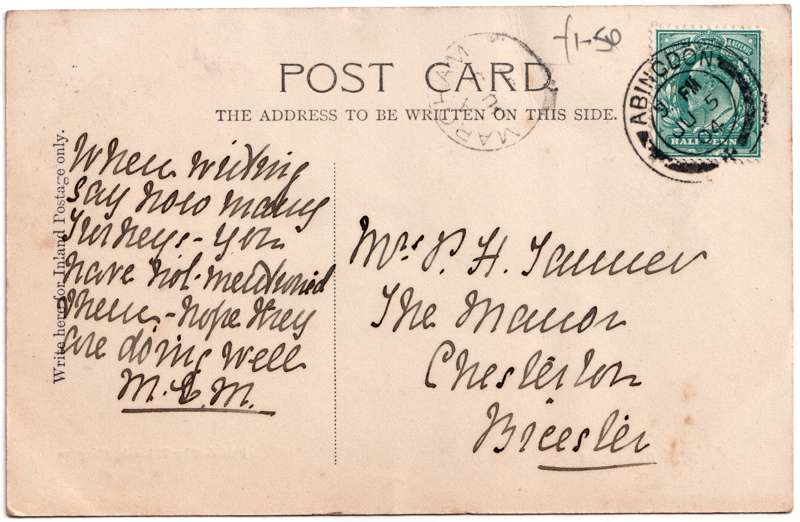 £1-50
POST CARD.
THE ADDRESS TO BE WRITTEN ON THIS SIDE.
MARCHAM
JU
ABINGDON
PM
JU 5
04
HALFPENNY
Write here for Inland Postage only.
When writing
say how many
Turkeys - you
have not mentioned
them - hope they
are doing well
M.E.M.
Mrs P. H. Tanner
The Manor
Chesterton
Bicester